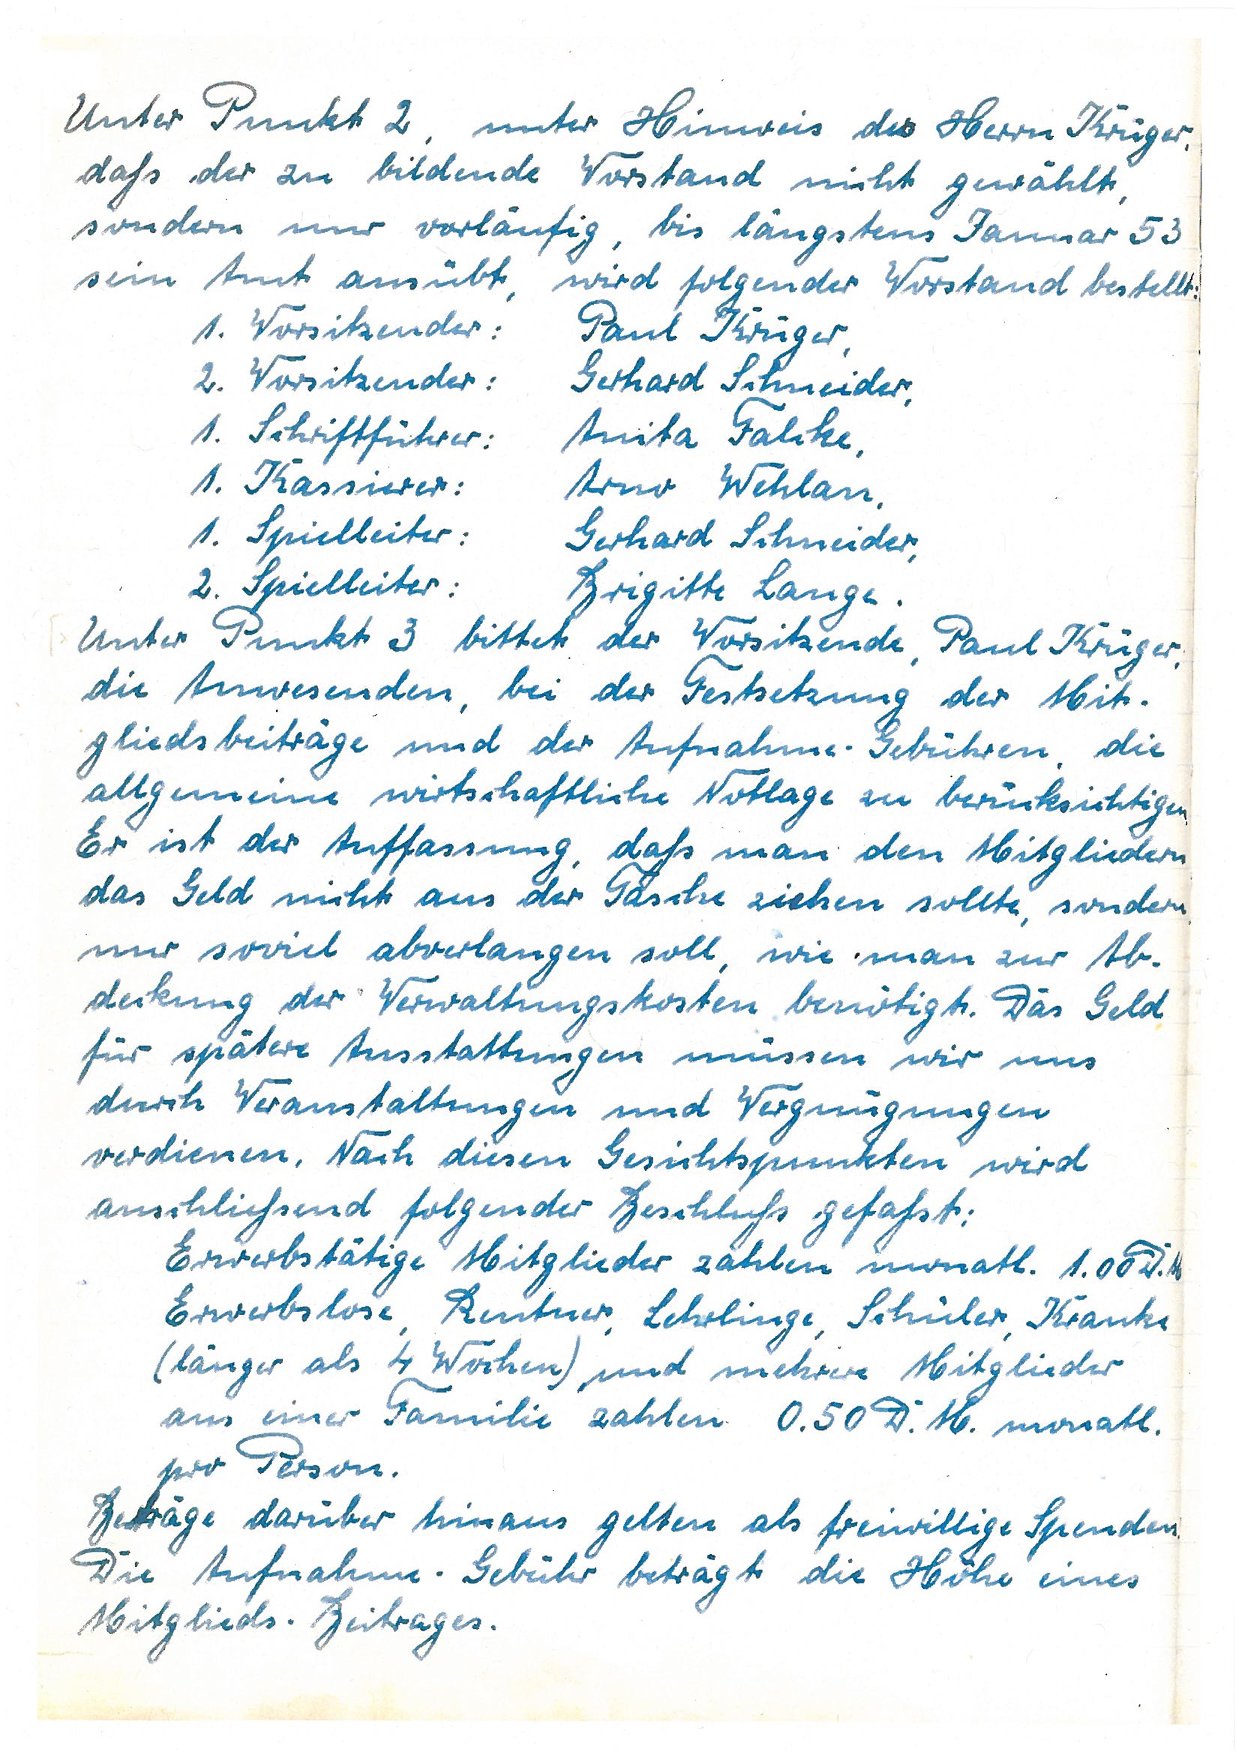 Unter Punkt 2, unter Hinweis des Herrn Krüger,
daß der zu bildende Vorstand nicht gewählt,
sondern nur vorläufig, bis längstens Januar 53
sein Amt ausübt, wird folgender Vorstand bestellt:
1. Vorsitzender: Paul Krüger,
2. Vorsitzender: Gerhard Schneider,
1. Schriftführer: Anita Falcke,
1. Kassierer: Arno Wehlan,
1. Spielleiter: Gerhard Schneider,
2. Spielleiter: Brigitte Lange.
Unter Punkt 3 bittet der Vorsitzende, Paul Krüger,
die Anwesenden, bei der Festsetzung der Mit-
gliedsbeiträge und der Aufnahme-Gebühren, die
allgemeine wirtschaftliche Notlage zu berücksichtigen.
Er ist der Auffassung, daß man den Mitgliedern
das Geld nicht aus der Tasche ziehen sollte, sondern
nur soviel abverlangen soll, wie man zur Ab-
deckung der Verwaltungskosten benötigt. Das Geld
für spätere Ausstattungen müssen wir uns
durch Veranstaltungen und Vergnügungen
verdienen. Nach diesen Gesichtspunkten wird
anschließend folgender Beschluß gefaßt:
Erwerbstätige Mitglieder zahlen monatl. 1.00 D.M
Erwerbslose, Rentner, Lehrlinge, Schüler, Kranke
(länger als 4 Wochen), und mehrere Mitglieder
aus einer Familie zahlen 0.50 D.M. monatl.
pro Person.
Beträge darüber hinaus gelten als freiwillige Spenden.
Die Aufnahme-Gebühr beträgt die Höhe eines
Mitglieds-Beitrages.